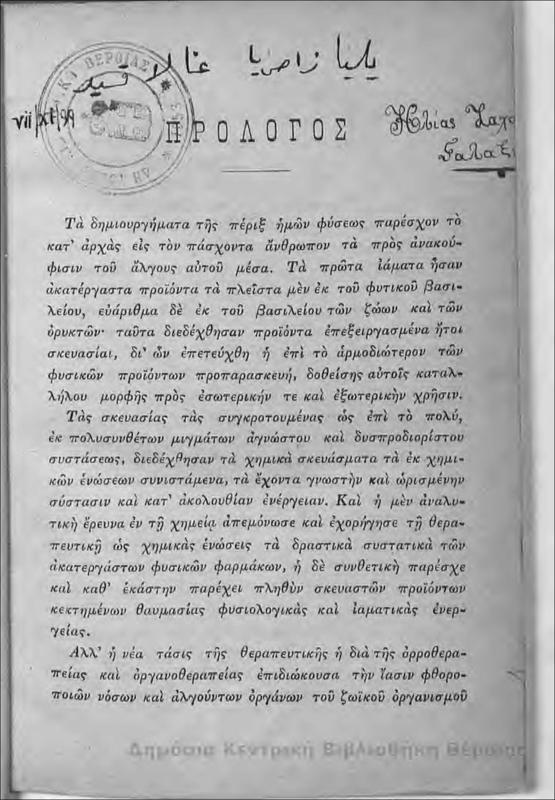 ΠΡΟΛΟΓΟΣ
vii/xi/99
Ἠλίας Ζαχ
Γαλαξ
Τὰ δημιουργήματα τῆς πέριξ ἡμῶν φύσεως παρέσχον τὸ
κατ' ἀρχὰς εἰς τὸν πάσχοντα ἄνθρωπον τὰ πρὸς ἀνακού-
φισιν τοῦ ἄλγους αὐτοῦ μέσα. Τὰ πρῶτα ἰάματα ἦσαν
ἀκατέργαστα προϊόντα τὰ πλεῖστα μὲν ἐκ τοῦ φυτικοῦ βασι-
λείου, εὐάριθμα δὲ ἐκ τοῦ βασιλείου τῶν ζώων καὶ τῶν
ὀρυκτῶν· ταῦτα διεδέχθησαν προϊόντα ἐπεξειργασμένα ἤτοι
σκευασίαι, δι' ὧν ἐπετεύχθη ἡ ἐπὶ τὸ ἁρμοδιώτερον τῶν
φυσικῶν προϊόντων προπαρασκευή, δοθείσης αὐτοῖς καταλ-
λήλου μορφῆς πρὸς ἐσωτερικήν τε καὶ ἐξωτερικὴν χρῆσιν.
Τὰς σκευασίας τὰς συγκροτουμένας ὡς ἐπὶ τὸ πολύ,
ἐκ πολυσυνθέτων μιγμάτων ἀγνώστου καὶ δυσπροδιορίστου
συστάσεως, διεδέχθησαν τὰ χημικὰ σκευάσματα τὰ ἐκ χημι-
κῶν ἑνώσεων συνιστάμενα, τὰ ἔχοντα γνωστὴν καὶ ὡρισμένην
σύστασιν καὶ κατ' ἀκολουθίαν ἐνέργειαν. Καὶ ἡ μὲν ἀναλυ-
τικὴ ἔρευνα ἐν τῇ χημείᾳ ἀπεμόνωσε καὶ ἐχορήγησε τῇ θερα-
πευτικῇ ὡς χημικὰς ἑνώσεις τὰ δραστικὰ συστατικὰ τῶν
ἀκατεργάστων φυσικῶν φαρμάκων, ἡ δὲ συνθετικὴ παρέσχε
καὶ καθ' ἑκάστην παρέχει πληθὺν σκευαστῶν προϊόντων
κεκτημένων θαυμασίας φυσιολογικὰς καὶ ἰαματικὰς ἐνερ-
γείας.
Ἀλλ' ἡ νέα τάσις τῆς θεραπευτικῆς ἡ διὰ τῆς ὀρροθερα-
πείας καὶ ὀργανοθεραπείας ἐπιδιώκουσα τὴν ἴασιν φθορο-
ποιῶν νόσων καὶ ἀλγούντων ὀργάνων τοῦ ζωϊκοῦ ὀργανισμοῦ
Δημόσια Κεντρική Βιβλιοθήκη Βέροιας